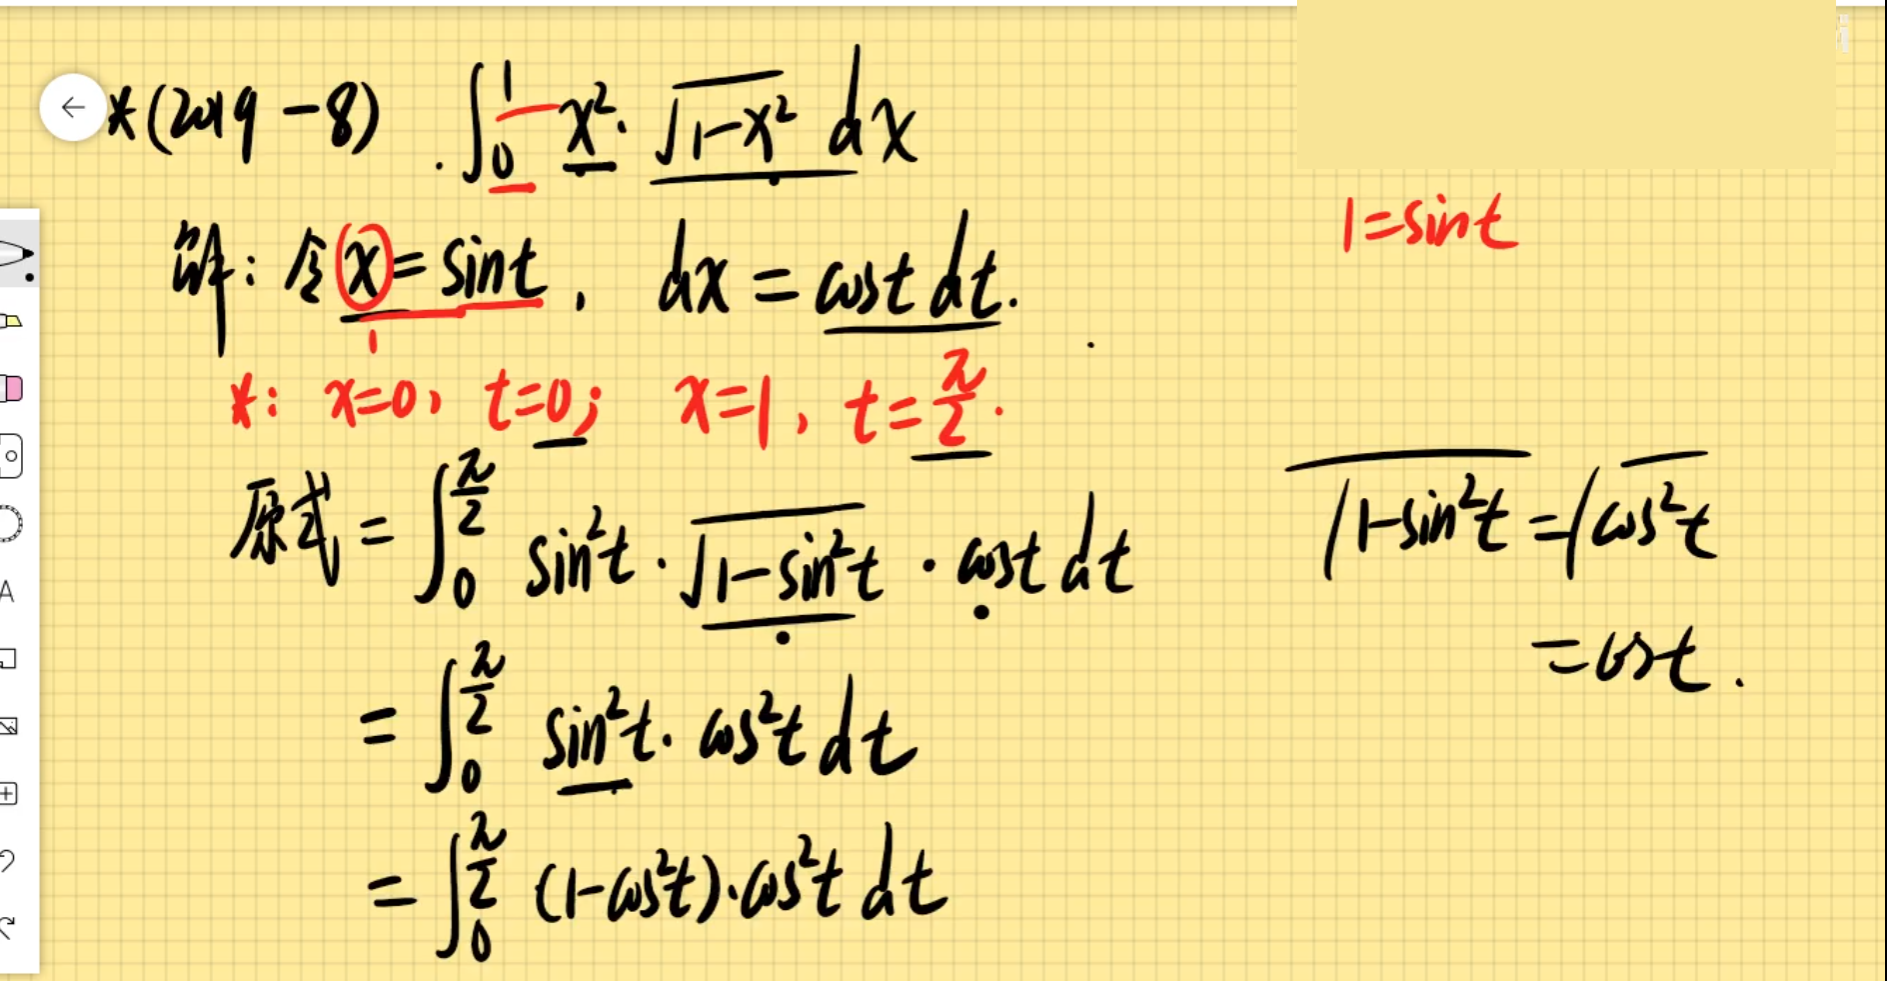 *(2019-8) ∫₀¹ x²·√(1-x²) dx
1=sint
解: 令x=sint, dx=cost dt.
*: x=0, t=0; x=1, t=π/2.
原式=∫₀^(π/2) sin²t·√(1-sin²t)·cost dt
√(1-sin²t)=√(cos²t)
=cost.
=∫₀^(π/2) sin²t·cos²t dt
=∫₀^(π/2) (1-cos²t)·cos²t dt